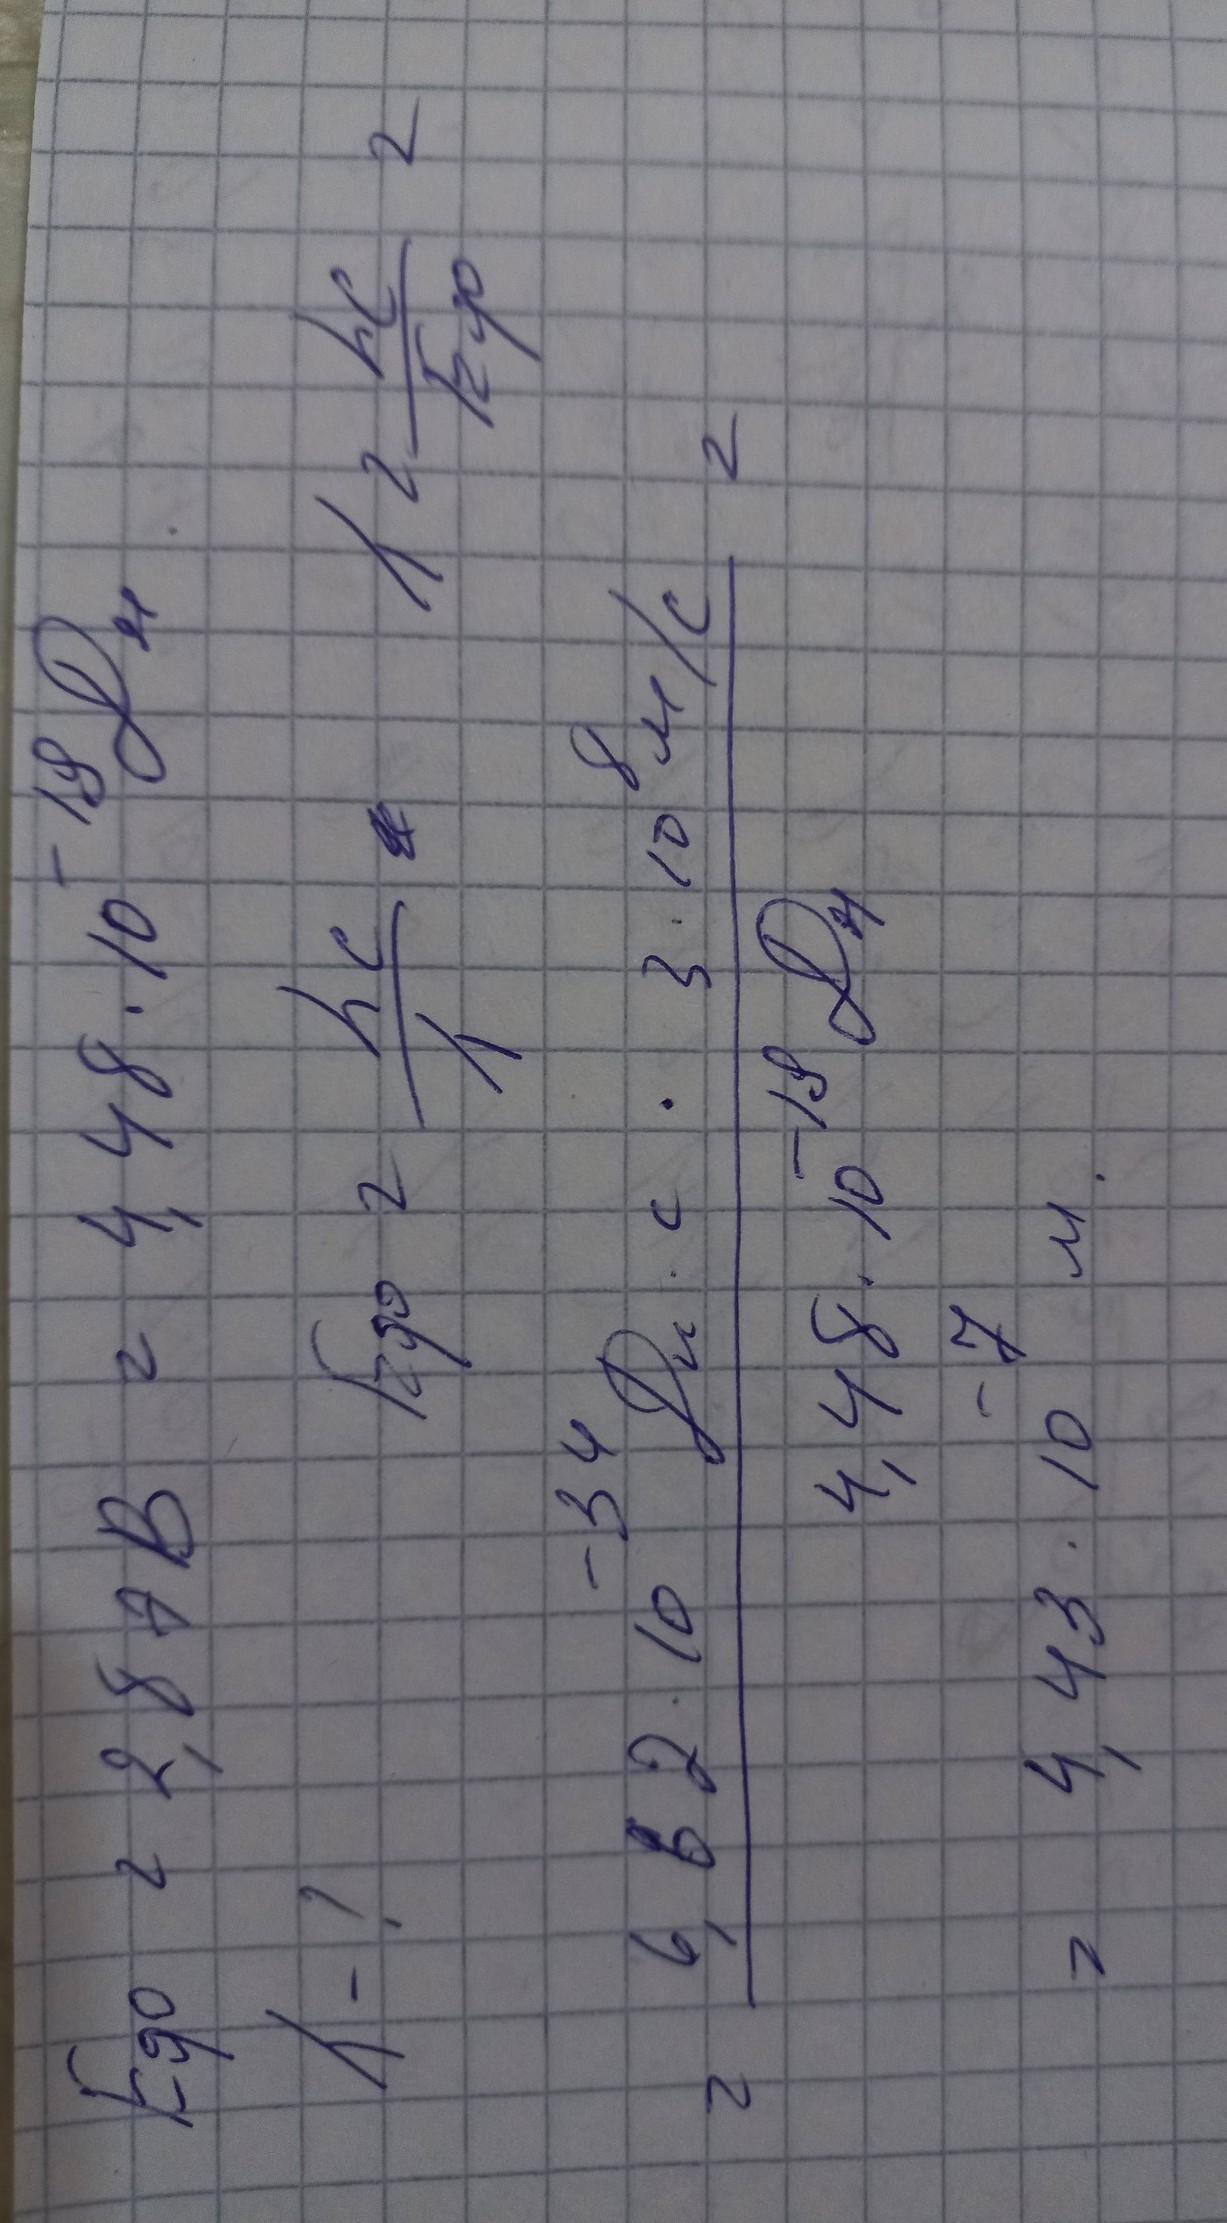 Eφo = 2,8 эВ = 4,48 · 10⁻¹⁹ Дж
λ - ? Eφo = hc/λ λ = hc/Eφo =
= 6,62 · 10⁻³⁴ Дж · с · 3 · 10⁸ м/с / 4,48 · 10⁻¹⁹ Дж =
= 4,43 · 10⁻⁷ м.